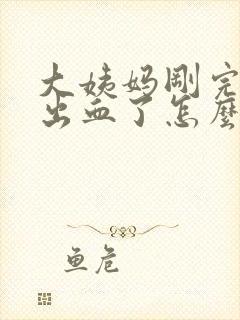 大姨妈刚完
出血了怎麽
鱼危